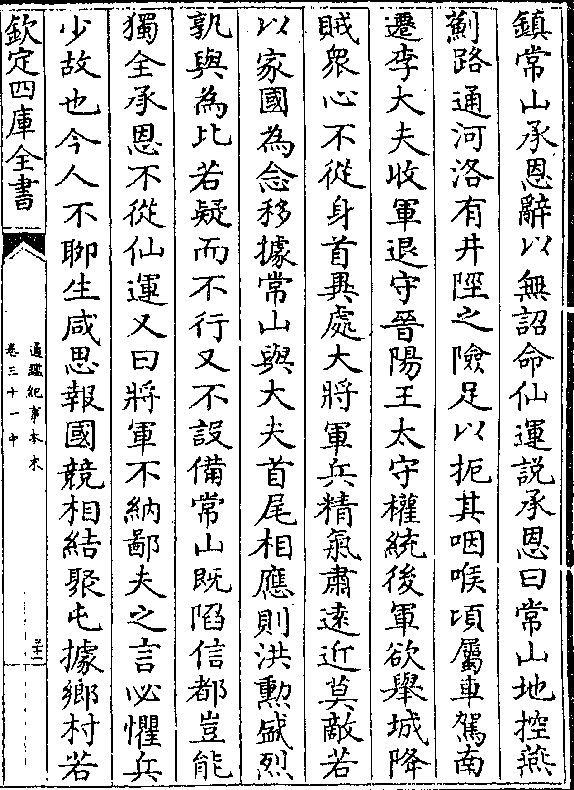 鎮常山承恩辭以無詔命仙運説承恩曰常山地控燕
薊路通河洛有井陘之險足以扼其咽喉頃屬車駕南
遷李大夫收軍退守晉陽王太守權統後軍欲舉城降
賊衆心不從身首異處大將軍兵精氣肅遠近莫敵若
以家國為念移據常山與大夫首尾相應則洪勲盛烈
孰與為比若疑而不行又不設備常山既陷信都豈能
獨全承恩不從仙運又曰將軍不納鄙夫之言必懼兵
少故也今人不聊生咸思報國競相結聚屯據鄉村若
欽定四庫全書
通鑑紀事本末
卷三十一中